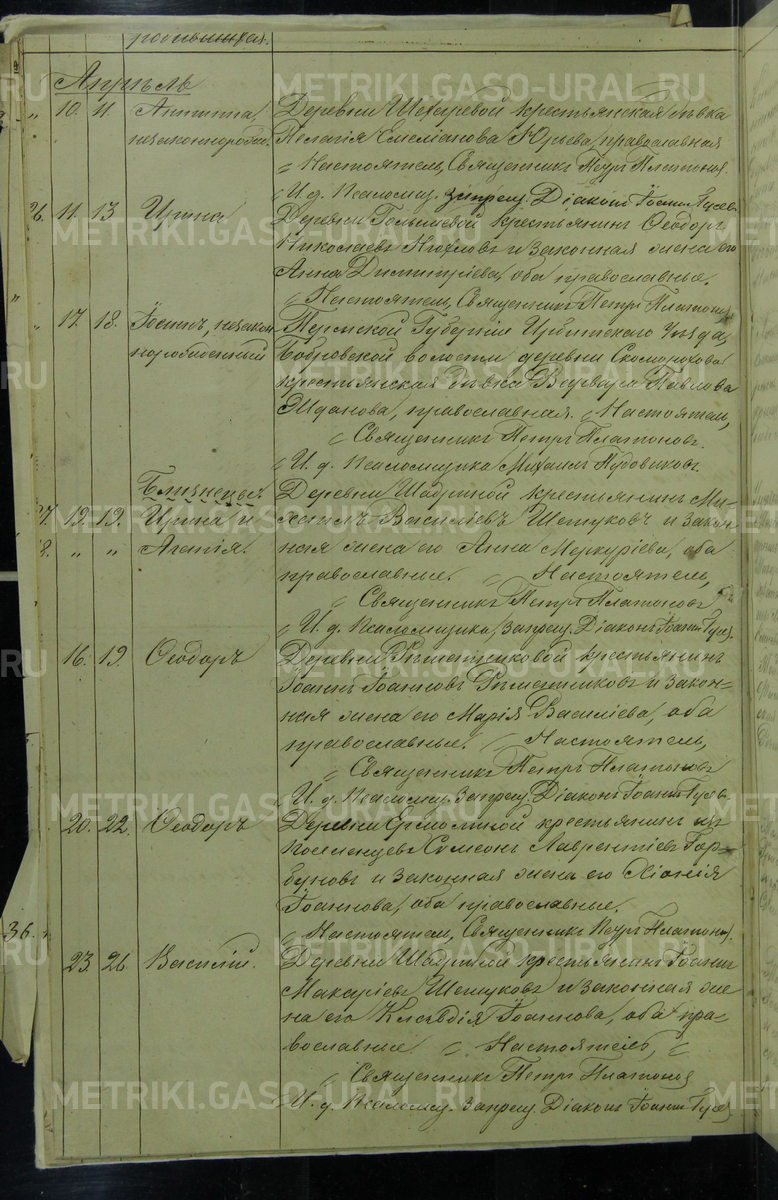 родившихся.
Апрѣль
" 10. 11. Антипа, Деревни крестьянская дѣвка
незаконнорожд. Пелагія Емеліанова Юрьева, православная
Настоятель, Священникъ Петръ Платоновъ
И. д. Псаломщ. запрещ. Діаконъ Іоаннъ
26. 11. 13 Ирина Деревни крестьянинъ Ѳеодоръ
Николаевъ и законная жена его
Анна Димитріева, оба православные.
Настоятель, Священникъ Петръ Платоновъ
" 17. 18. Іосифъ, незакон Пермской Губерніи Ирбитскаго уѣзда,
норожденный Бобровской волости деревни Скоморохова
крестьянская дѣвка Варвара Павлова
Жданова, православная. Настоятель,
Священникъ Петръ Платоновъ.
И. д. Псаломщика Михаилъ
Близнецы: Деревни Шадриной крестьянинъ Ми-
27. 19. 19. Ирина и хаилъ Василіевъ Шешуковъ и закон-
28. " " Агапія. ная жена его Анна Меркуріева, оба
православные. Настоятель,
Священникъ Петръ Платоновъ
И. д. Псаломщика, запрещ. Діаконъ Іоаннъ
16. 19. Ѳеодоръ Деревни крестьянинъ
Іоаннъ Іоанновъ и закон-
ная жена его Марія Василіева, оба
православные. Настоятель,
Священникъ Петръ Платоновъ
И. д. Псаломщ. запрещ. Діаконъ Іоаннъ
20. 22. Ѳеодоръ Деревни Ермолиной крестьянинъ из
поселенцевъ Симеонъ Лаврентіевъ Гор-
буновъ и законная жена его Хіонія
Іоаннова, оба православные.
36. Настоятель, Священникъ Петръ Платоновъ.
23. 26. Василій. Деревни Шадриной крестьянинъ Іоаннъ
Шешуковъ и законная же-
на его Клавдія Іоаннова, оба пра-
вославные. Настоятель,
Священникъ Петръ Платоновъ
И. д. Псаломщ. запрещ. Діаконъ Іоаннъ
METRIKI.GASO-URAL.RU